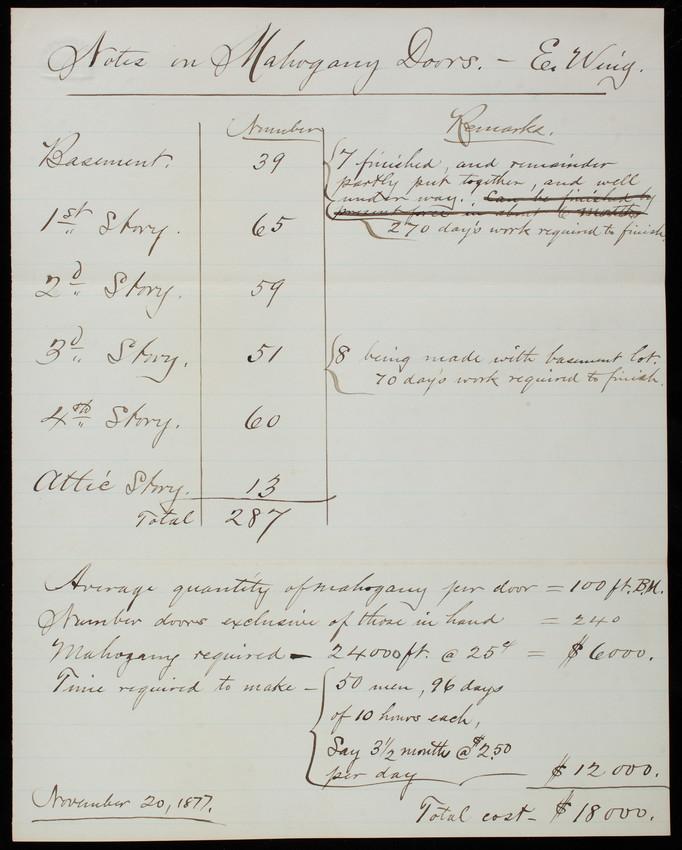 Notes on Mahogany Doors. — E. Wing.
Number Remarks.
Basement. 39 7 finished, and remainder
partly put together, and well
under way. Can be finished by
present force in about 6 months
1st Story. 65 270 day's work required to finish.
2d Story. 59
3d Story. 51 8 being made with basement lot.
70 day's work required to finish.
4th Story. 60
Attic Story. 13
Total 287
Average quantity of mahogany per door = 100 ft. B.M.
Number doors exclusive of those in hand = 240
Mahogany required — 24000 ft. @ 25¢ = $6000.
Time required to make — 50 men, 96 days
of 10 hours each,
Say 3 1/2 months @ $2.50
per day — $12000.
November 20, 1877. Total cost — $18000.